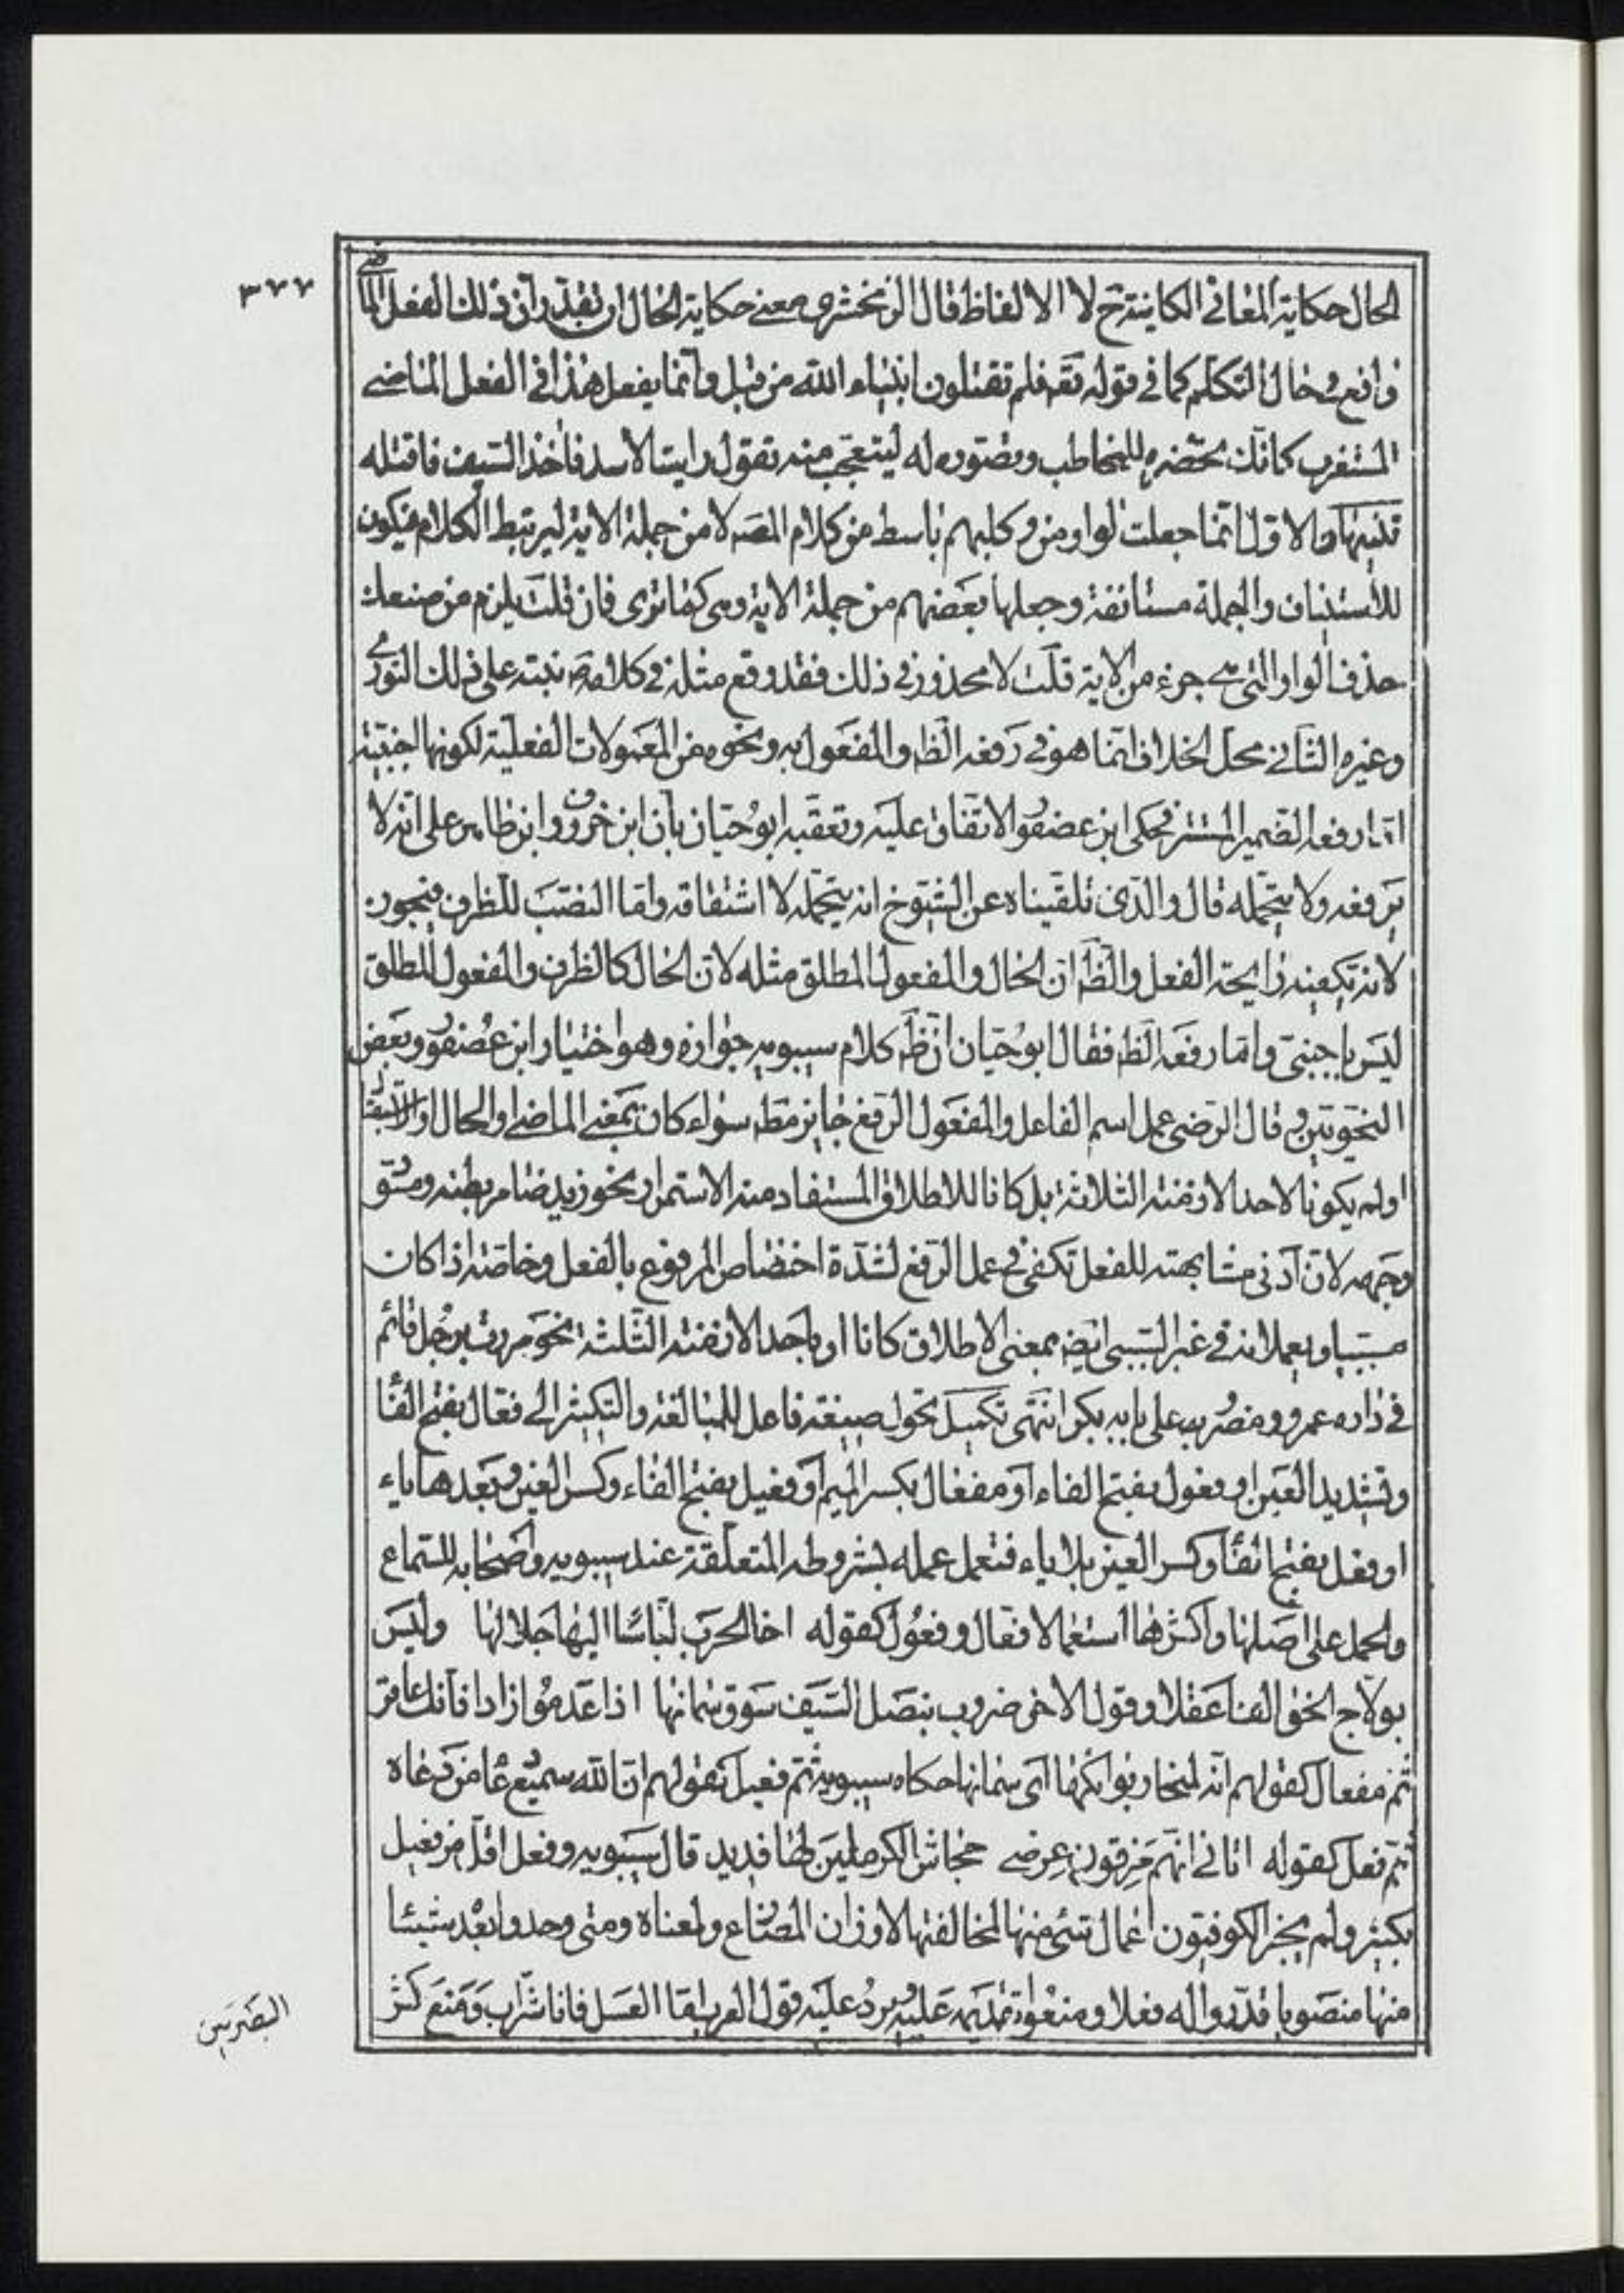 ٣٧٧
الحال حكاية المعاني الكاينة ح لا الالفاظ قال الزمخشري معنى حكاية الحال ان تقدر وان ذلك الفعل الماضي
واقع في حال التكلم كما في قوله تعه فلم تقتلون انبياء الله من قبل وانما يفعل هذا في الفعل الماضي
المستغرب كانك تحضره للمخاطب وتصوره له ليتعجب منه تقول رايت الاسد فاخذ السيف فاقتله
تنبيهان الاول انما جعلت الواو من وكلبهم باسط من كلام المصـ لا من جملة الاية ليرتبط الكلام فيكون
للاستيناف والجملة مستانفة وجعلها بعضهم من جملة الاية وهي كما ترى فان قلت يلزم من صنعك
حذف الواو التي هي جزء من الاية قلت لا محذور في ذلك فقد وقع مثله في كلامهم نبه على ذلك النووي
وغيره الثاني محل الخلاف انما هو في رفعه الظ والمفعول به ونحوه من المعمولات الفعلية لكونها اجنبية
اما رفعه الضمير المستتر فحكى ابن عصفور الاتفاق عليه وتعقبه ابو حيان بان ابن خروف وابن طاهر على انه لا
يرفعه ولا يتحمله قال والذي تلقيناه عن الشيوخ انه يتحمله لاشتقاقه واما النصب للظرف فيجوز
لانه تكفيه رايحة الفعل والظ ان الحال والمفعول المطلق مثله لان الحال كالظرف والمفعول المطلق
ليس باجنبي واما رفعه الظ فقال ابو حيان ان ظ كلام سيبويه جوازه وهو اختيار ابن عصفور وبعض
النحويين وقال الرضي عمل اسم الفاعل والمفعول الرفع جايز مط سواء كان بمعنى الماضي او الحال او الاستقبال
او لم يكونا لاحد الازمنة الثلاثة بل كانا للاطلاق المستفاد منه الاستمرار نحو زيد ضامر بطنه ومسود
وجهه لان ادنى مشابهته للفعل تكفي في عمل الرفع لشدة اختصاص المرفوع بالفعل وخاصة اذا كان
مسببا ويعملانه في غير السببي ايضا بمعنى الاطلاق كانا او باحد الازمنة الثلثة نحو مررت برجل قائم
في داره عمرو ومضروب على بابه بكر انتهى تكميل تحول صيغة فاعل للمبالغة والتكثير الى فعال بفتح الفا
وتشديد العين او فعول بفتح الفاء او مفعال بكسر الميم او فعيل بفتح الفاء وكسر العين وبعدها ياء
او فعل بفتح الفا وكسر العين بلا ياء فتعمل عمله بشروطه المتعلقة عند سيبويه واصحابه للسماع
والحمل على اصلها واكثرها استعمالا فعال وفعول كقوله اخا الحرب لباسا اليها جلالها وليس
بولاج الخوالف اعقلا وقول الاخر ضروب بنصل السيف سوق سمانها اذا عدموا زادا فانك عاقر
ثم مفعال كقولهم انه لمنحار بوائكها اى سمانها حكاه سيبويه ثم فعيل كقولهم ان الله سميع دعا من دعاه
ثم فعل كقوله اتاني انهم مزقون عرضي جحاش الكرملين لها فديد قال سيبويه وفعل اقل من فعيل
بكثير ولم يجز الكوفيون اعمال شئ منها لمخالفتها لاوزان المضارع ولمعناه ومتى وجدوا بعد شيئا
منها منصوبا قدروا له فعلا ومنعوا تقديمه عليه ويرد عليه قول العرب اما العسل فانا شراب ومنع كثر
البصريين